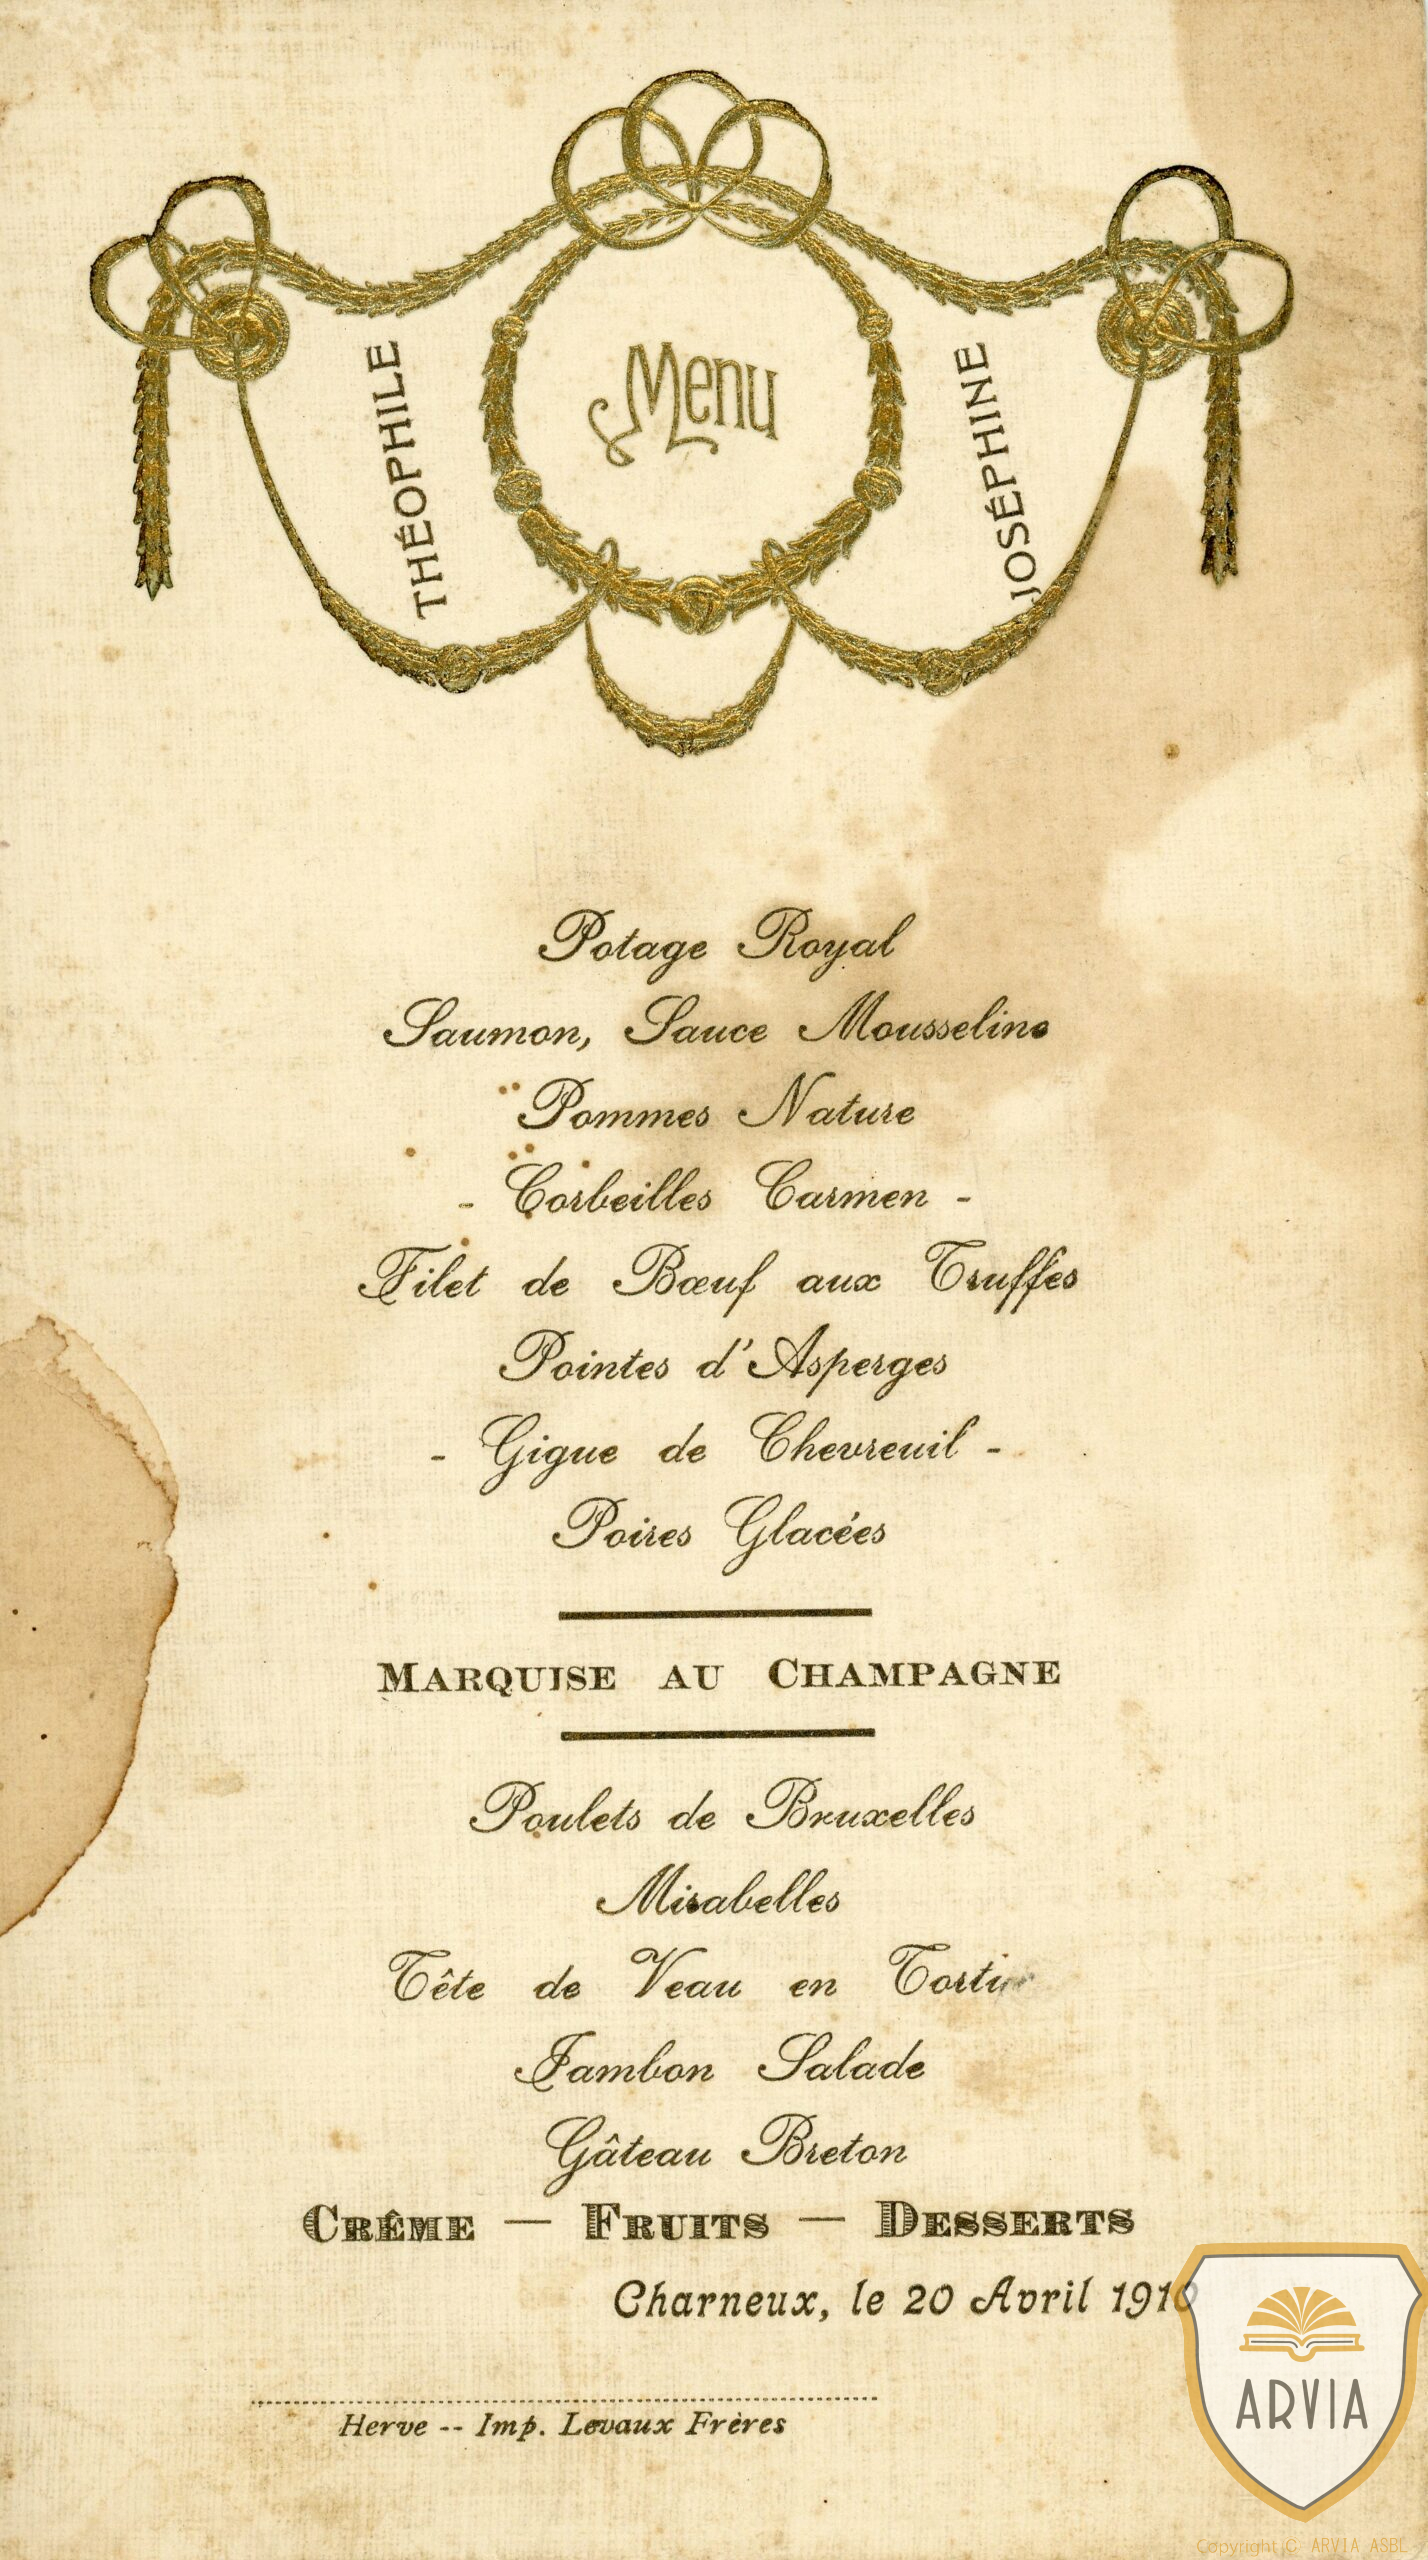 THÉOPHILE
Menu
JOSÉPHINE
Potage Royal
Saumon, Sauce Mousseline
Pommes Nature
- Corbeilles Carmen -
Filet de Bœuf aux Truffes
Pointes d'Asperges
- Gigue de Chevreuil -
Poires Glacées
MARQUISE AU CHAMPAGNE
Poulets de Bruxelles
Mirabelles
Tête de Veau en
Jambon Salade
Gâteau Breton
CRÊME — FRUITS — DESSERTS
Charneux, le 20 Avril 1910
Herve -- Imp. Levaux Frères
ARVIA
Copyright © ARVIA ASBL